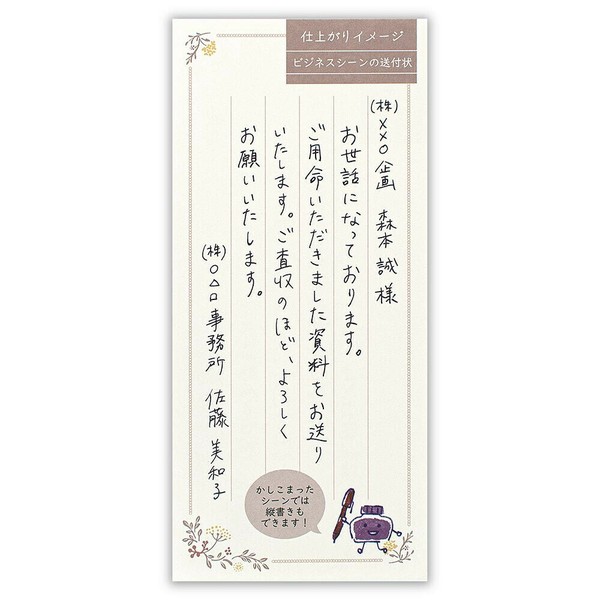 仕上がりイメージ
ビジネスシーンの送付状
(株)××○企画 森本誠様
お世話になっております。
ご用命いただきました資料をお送り
いたします。ご査収のほど、よろしく
お願いいたします。
(株)○△□事務所 佐藤美和子
かしこまった
シーンでは
縦書きも
できます!